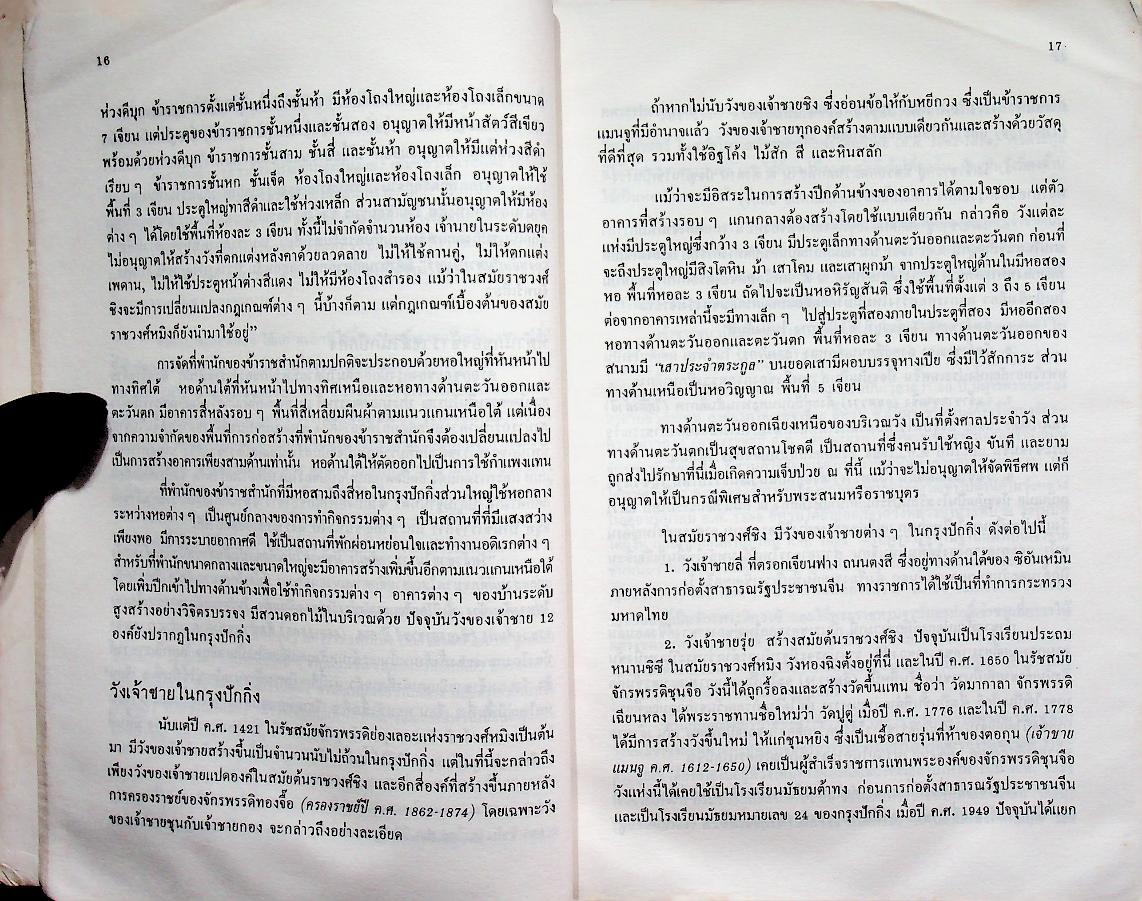 16
ห่วงดีบุก ข้าราชการตั้งแต่ชั้นหนึ่งถึงชั้นห้า มีห้องโถงใหญ่และห้องโถงเล็กขนาด
7 เจียน แต่ประตูของข้าราชการชั้นหนึ่งและชั้นสอง อนุญาตให้มีหน้าสัตว์สีเขียว
พร้อมด้วยห่วงดีบุก ข้าราชการชั้นสาม ชั้นสี่ และชั้นห้า อนุญาตให้มีแต่ห่วงสีดำ
เรียบ ๆ ข้าราชการชั้นหก ชั้นเจ็ด ห้องโถงใหญ่และห้องโถงเล็ก อนุญาตให้ใช้
พื้นที่ 3 เจียน ประตูใหญ่ทาสีดำและใช้ห่วงเหล็ก ส่วนสามัญชนนั้นอนุญาตให้มีห้อง
ต่าง ๆ ได้โดยใช้พื้นที่ห้องละ 3 เจียน ทั้งนี้ไม่จำกัดจำนวนห้อง เจ้านายในระดับดยุค
ไม่อนุญาตให้สร้างวังที่ตกแต่งหลังคาด้วยลวดลาย ไม่ให้ใช้คานคู่, ไม่ให้ตกแต่ง
เพดาน, ไม่ให้ใช้ประตูหน้าต่างสีแดง ไม่ให้มีห้องโถงสำรอง แม้ว่าในสมัยราชวงศ์
ชิงจะมีการเปลี่ยนแปลงกฎเกณฑ์ต่าง ๆ นี้บ้างก็ตาม แต่กฎเกณฑ์เบื้องต้นของสมัย
ราชวงศ์หมิงก็ยังนำมาใช้อยู่”
การจัดที่พำนักของข้าราชสำนักตามปกติจะประกอบด้วยหอใหญ่ที่หันหน้าไป
ทางทิศใต้ หอด้านใต้ที่หันหน้าไปทางทิศเหนือและหอทางด้านตะวันออกและ
ตะวันตก มีอาคารสี่หลังรอบ ๆ พื้นที่สี่เหลี่ยมผืนผ้าตามแนวแกนเหนือใต้ แต่เนื่อง
จากความจำกัดของพื้นที่การก่อสร้างที่พำนักของข้าราชสำนักจึงต้องเปลี่ยนแปลงไป
เป็นการสร้างอาคารเพียงสามด้านเท่านั้น หอด้านใต้ให้ตัดออกไปเป็นการใช้กำแพงแทน
ที่พำนักของข้าราชสำนักที่มีหอสามถึงสี่หอในกรุงปักกิ่งส่วนใหญ่ใช้หอกลาง
ระหว่างหอต่าง ๆ เป็นศูนย์กลางของการทำกิจกรรมต่าง ๆ เป็นสถานที่ที่มีแสงสว่าง
เพียงพอ มีการระบายอากาศดี ใช้เป็นสถานที่พักผ่อนหย่อนใจและทำงานอดิเรกต่าง ๆ
สำหรับที่พำนักขนาดกลางและขนาดใหญ่จะมีอาคารสร้างเพิ่มขึ้นอีกตามแนวแกนเหนือใต้
โดยเพิ่มปีกเข้าไปทางด้านข้างเพื่อใช้ทำกิจกรรมต่าง ๆ อาคารต่าง ๆ ของบ้านระดับ
สูงสร้างอย่างวิจิตรบรรจง มีสวนดอกไม้ในบริเวณด้วย ปัจจุบันวังของเจ้าชาย 12
องค์ยังปรากฏในกรุงปักกิ่ง
วังเจ้าชายในกรุงปักกิ่ง
นับแต่ปี ค.ศ. 1421 ในรัชสมัยจักรพรรดิย่องเลอะแห่งราชวงศ์หมิงเป็นต้น
มา มีวังของเจ้าชายสร้างขึ้นเป็นจำนวนนับไม่ถ้วนในกรุงปักกิ่ง แต่ในที่นี้จะกล่าวถึง
เพียงวังของเจ้าชายแปดองค์ในสมัยต้นราชวงศ์ชิง และอีกสี่องค์ที่สร้างขึ้นภายหลัง
การครองราชย์ของจักรพรรดิทองจื๊อ (ครองราชย์ปี ค.ศ. 1862-1874) โดยเฉพาะวัง
ของเจ้าชายชุนกับเจ้าชายกอง จะกล่าวถึงอย่างละเอียด
17
ถ้าหากไม่นับวังของเจ้าชายชิง ซึ่งอ่อนข้อให้กับหยีกวง ซึ่งเป็นข้าราชการ
แมนจูที่มีอำนาจแล้ว วังของเจ้าชายทุกองค์สร้างตามแบบเดียวกันและสร้างด้วยวัสดุ
ที่ดีที่สุด รวมทั้งใช้อิฐโค้ง ไม้สัก สี และหินสลัก
แม้ว่าจะมีอิสระในการสร้างปีกด้านข้างของอาคารได้ตามใจชอบ แต่ตัว
อาคารที่สร้างรอบ ๆ แกนกลางต้องสร้างโดยใช้แบบเดียวกัน กล่าวคือ วังแต่ละ
แห่งมีประตูใหญ่ซึ่งกว้าง 3 เจียน มีประตูเล็กทางด้านตะวันออกและตะวันตก ก่อนที่
จะถึงประตูใหญ่มีสิงโตหิน ม้า เสาโคม และเสาผูกม้า จากประตูใหญ่ด้านในมีหอสอง
หอ พื้นที่หอละ 3 เจียน ถัดไปจะเป็นหอหิรัญสันติ ซึ่งใช้พื้นที่ตั้งแต่ 3 ถึง 5 เจียน
ต่อจากอาคารเหล่านี้จะมีทางเล็ก ๆ ไปสู่ประตูที่สองภายในประตูที่สอง มีหออีกสอง
หอทางด้านตะวันออกและตะวันตก พื้นที่หอละ 3 เจียน ทางด้านตะวันออกของ
สนามมี “เสาประจำตระกูล” บนยอดเสามีผอบบรรจุหางเปีย ซึ่งมีไว้สักการะ ส่วน
ทางด้านเหนือเป็นหอวิญญาณ พื้นที่ 5 เจียน
ทางด้านตะวันออกเฉียงเหนือของบริเวณวัง เป็นที่ตั้งศาลประจำวัง ส่วน
ทางด้านตะวันตกเป็นสุขสถานโชคดี เป็นสถานที่ซึ่งคนรับใช้หญิง ขันที และยาม
ถูกส่งไปรักษาที่นี่เมื่อเกิดความเจ็บป่วย ณ ที่นี้ แม้ว่าจะไม่อนุญาตให้จัดพิธีศพ แต่ก็
อนุญาตให้เป็นกรณีพิเศษสำหรับพระสนมหรือราชบุตร
ในสมัยราชวงศ์ชิง มีวังของเจ้าชายต่าง ๆ ในกรุงปักกิ่ง ดังต่อไปนี้
1. วังเจ้าชายลี่ ที่ตรอกเจียนฟาง ถนนตงสี ซึ่งอยู่ทางด้านใต้ของ ซิอันเหมิน
ภายหลังการก่อตั้งสาธารณรัฐประชาชนจีน ทางราชการได้ใช้เป็นที่ทำการกระทรวง
มหาดไทย
2. วังเจ้าชายรุ่ย สร้างสมัยต้นราชวงศ์ชิง ปัจจุบันเป็นโรงเรียนประถม
หนานชิซี ในสมัยราชวงศ์หมิง วังหองฉิงตั้งอยู่ที่นี่ และในปี ค.ศ. 1650 ในรัชสมัย
จักรพรรดิชุนจือ วังนี้ได้ถูกรื้อลงและสร้างวัดขึ้นแทน ชื่อว่า วัดมากาลา จักรพรรดิ
เฉียนหลง ได้พระราชทานชื่อใหม่ว่า วัดปูตู่ เมื่อปี ค.ศ. 1776 และในปี ค.ศ. 1778
ได้มีการสร้างวังขึ้นใหม่ ให้แก่ชุนหยิง ซึ่งเป็นเชื้อสายรุ่นที่ห้าของตอกุน (เจ้าชาย
แมนจู ค.ศ. 1612-1650) เคยเป็นผู้สำเร็จราชการแทนพระองค์ของจักรพรรดิชุนจือ
วังแห่งนี้ได้เคยใช้เป็นโรงเรียนมัธยมต้าทง ก่อนการก่อตั้งสาธารณรัฐประชาชนจีน
และเป็นโรงเรียนมัธยมหมายเลข 24 ของกรุงปักกิ่ง เมื่อปี ค.ศ. 1949 ปัจจุบันได้แยก